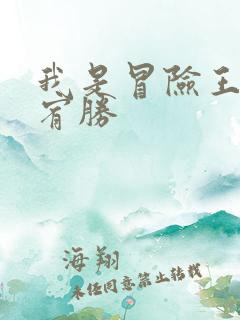 我是冒險王
肖勝
海翔
未經同意禁止轉載